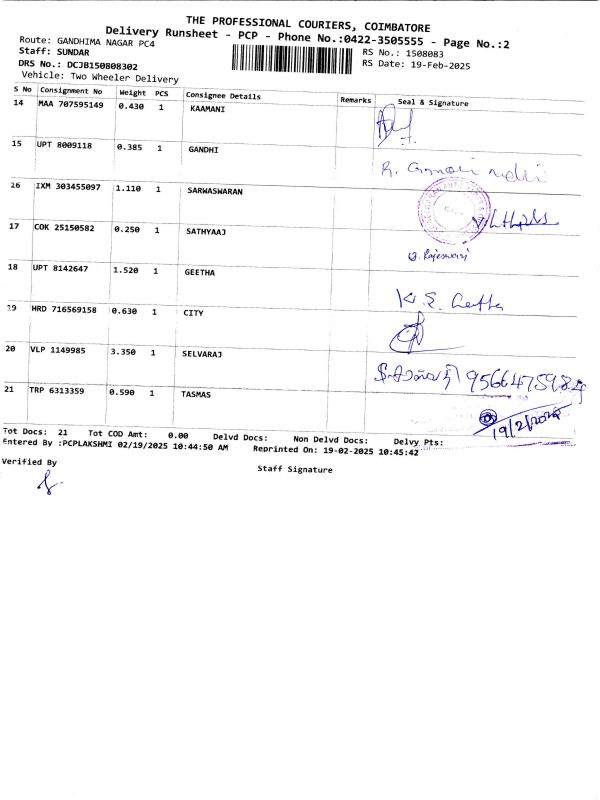 THE PROFESSIONAL COURIERS, COIMBATORE
Delivery Runsheet - PCP - Phone No.:0422-3505555 - Page No.:2
Route: GANDHIMA NAGAR PC4
RS No.: 1508083
Staff: SUNDAR
RS Date: 19-Feb-2025
DRS No.: DCJB150808302
Vehicle: Two Wheeler Delivery
S No Consignment No Weight PCS Consignee Details Remarks Seal & Signature
14 MAA 707595149 0.430 1 KAAMANI
15 UPT 8009118 0.385 1 GANDHI
16 IXM 303455097 1.110 1 SARWASWARAN
17 COK 25150582 0.250 1 SATHYAAJ
Rajeswari
18 UPT 8142647 1.520 1 GEETHA
K. S. Geetha
19 HRD 716569158 0.630 1 CITY
20 VLP 1149985 3.350 1 SELVARAJ
9566475984
21 TRP 6313359 0.590 1 TASMAS
19/2/2025
Tot Docs: 21 Tot COD Amt: 0.00 Delvd Docs: Non Delvd Docs: Delvy Pts:
Entered By :PCPLAKSHMI 02/19/2025 10:44:50 AM Reprinted On: 19-02-2025 10:45:42
Verified By
Staff Signature